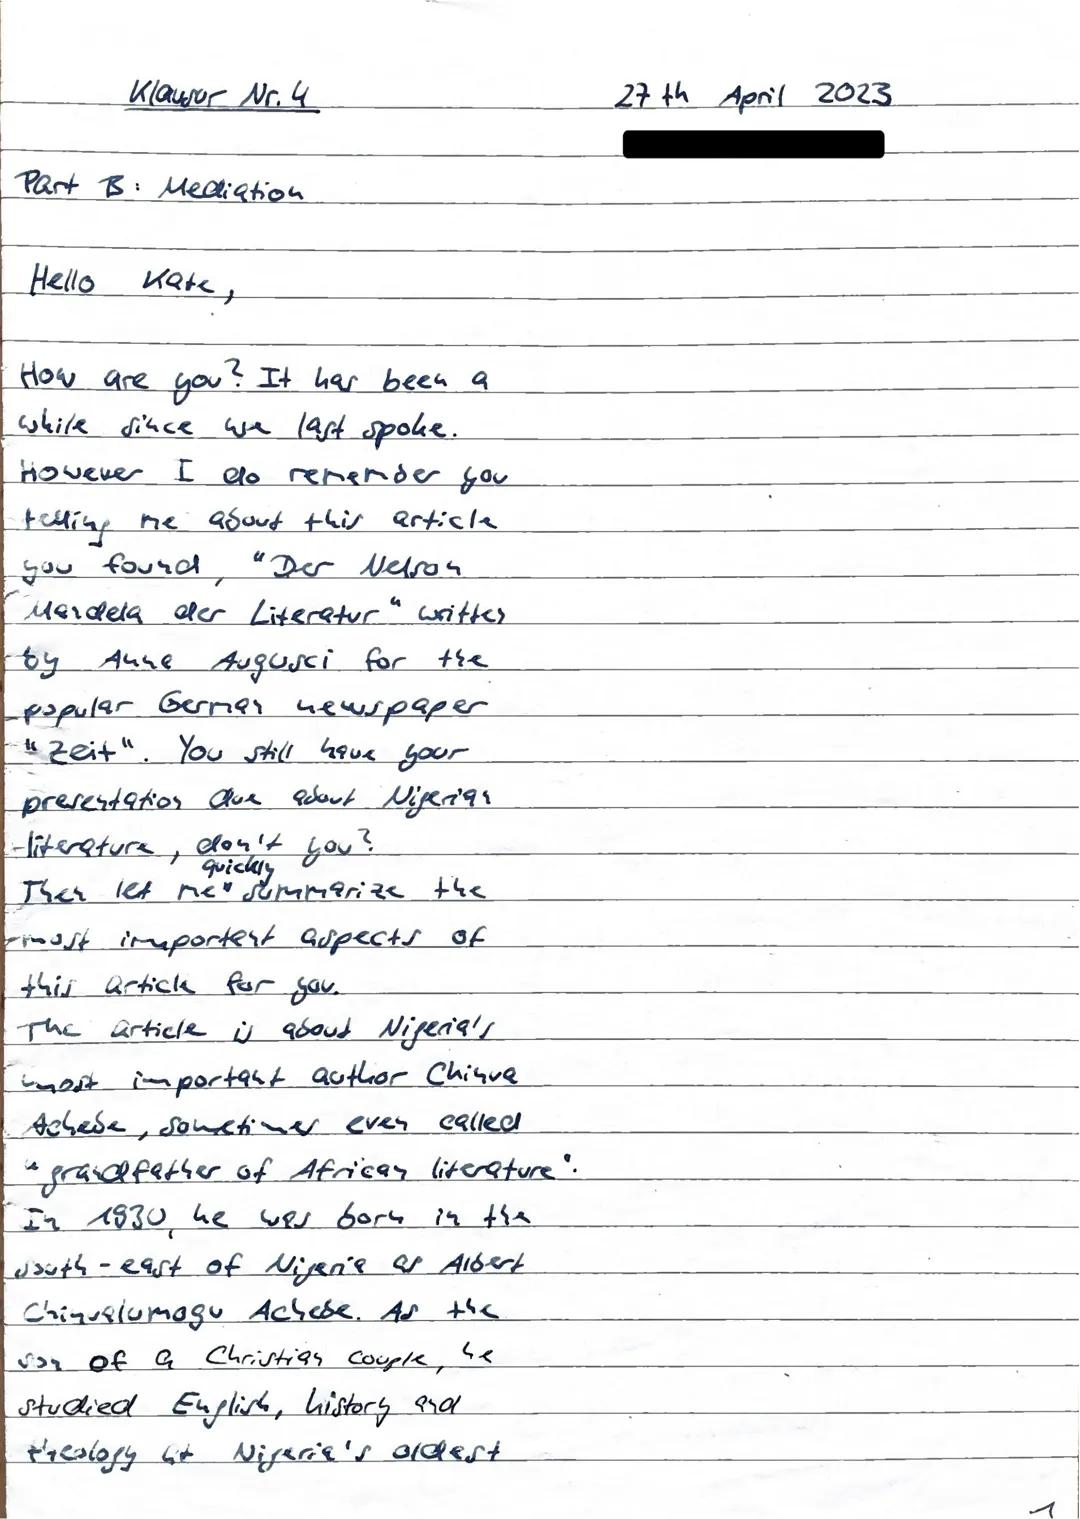 Klausur Nr. 4
27th April 2023
Part B: Mediation
Hello Kate,
How are you? It has been a
while since we last spoke.
However I do remember you
telling me about this article
you found, "Der Nelson
Mandela der Literatur" written
by Anne Augusci for the
popular German newspaper
"Zeit". You still have your
presentation due about Nigerian
literature, don't you?
Then let me quickly summarize the
most important aspects of
this article for you.
The article is about Nigeria's
most important author Chinua
Achebe, sometimes even called
"grandfather of African literature".
In 1930, he was born in the
south-east of Nigeria as Albert
Chinualumogu Achebe. As the
son of a Christian couple, he
studied English, history and
theology at Nigeria's oldest
1